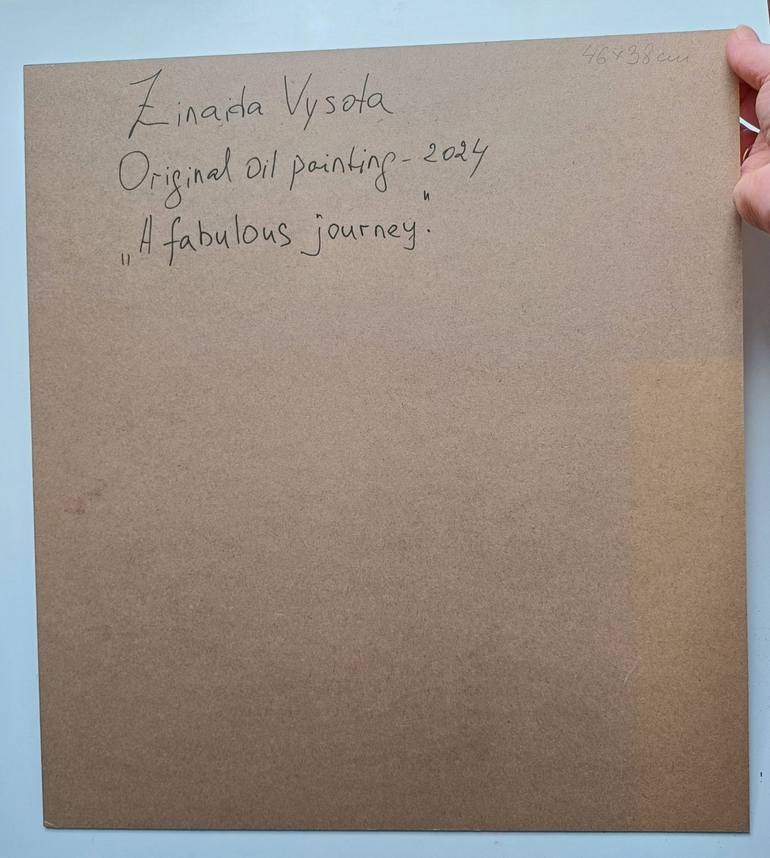 46x38cm
Zinaida Vysota
Original oil painting - 2024
„A fabulous journey."